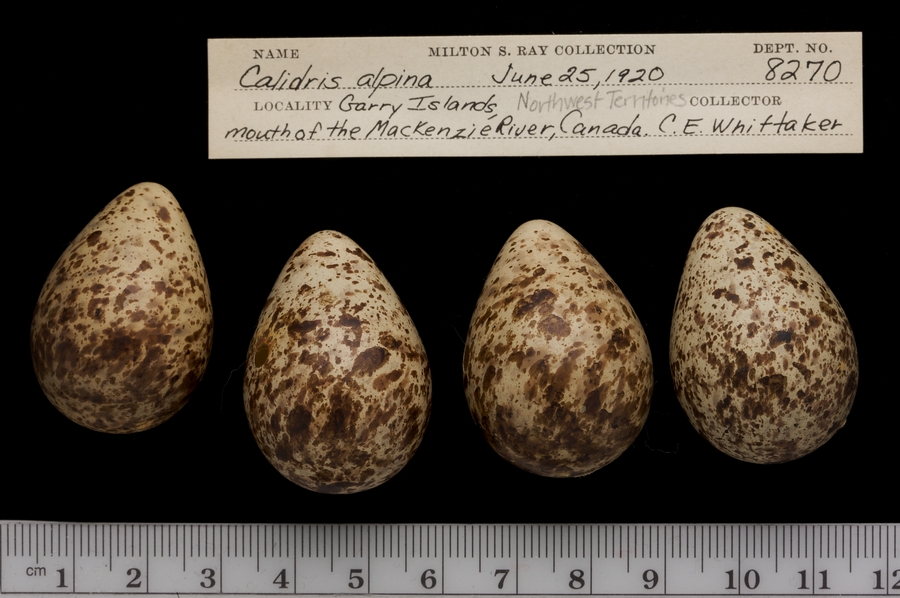 NAME MILTON S. RAY COLLECTION DEPT. NO.
Calidris alpina June 25, 1920 8270
LOCALITY Garry Islands, Northwest Territories COLLECTOR
mouth of the Mackenzie River, Canada. C. E. Whittaker
cm 1 2 3 4 5 6 7 8 9 10 11 12